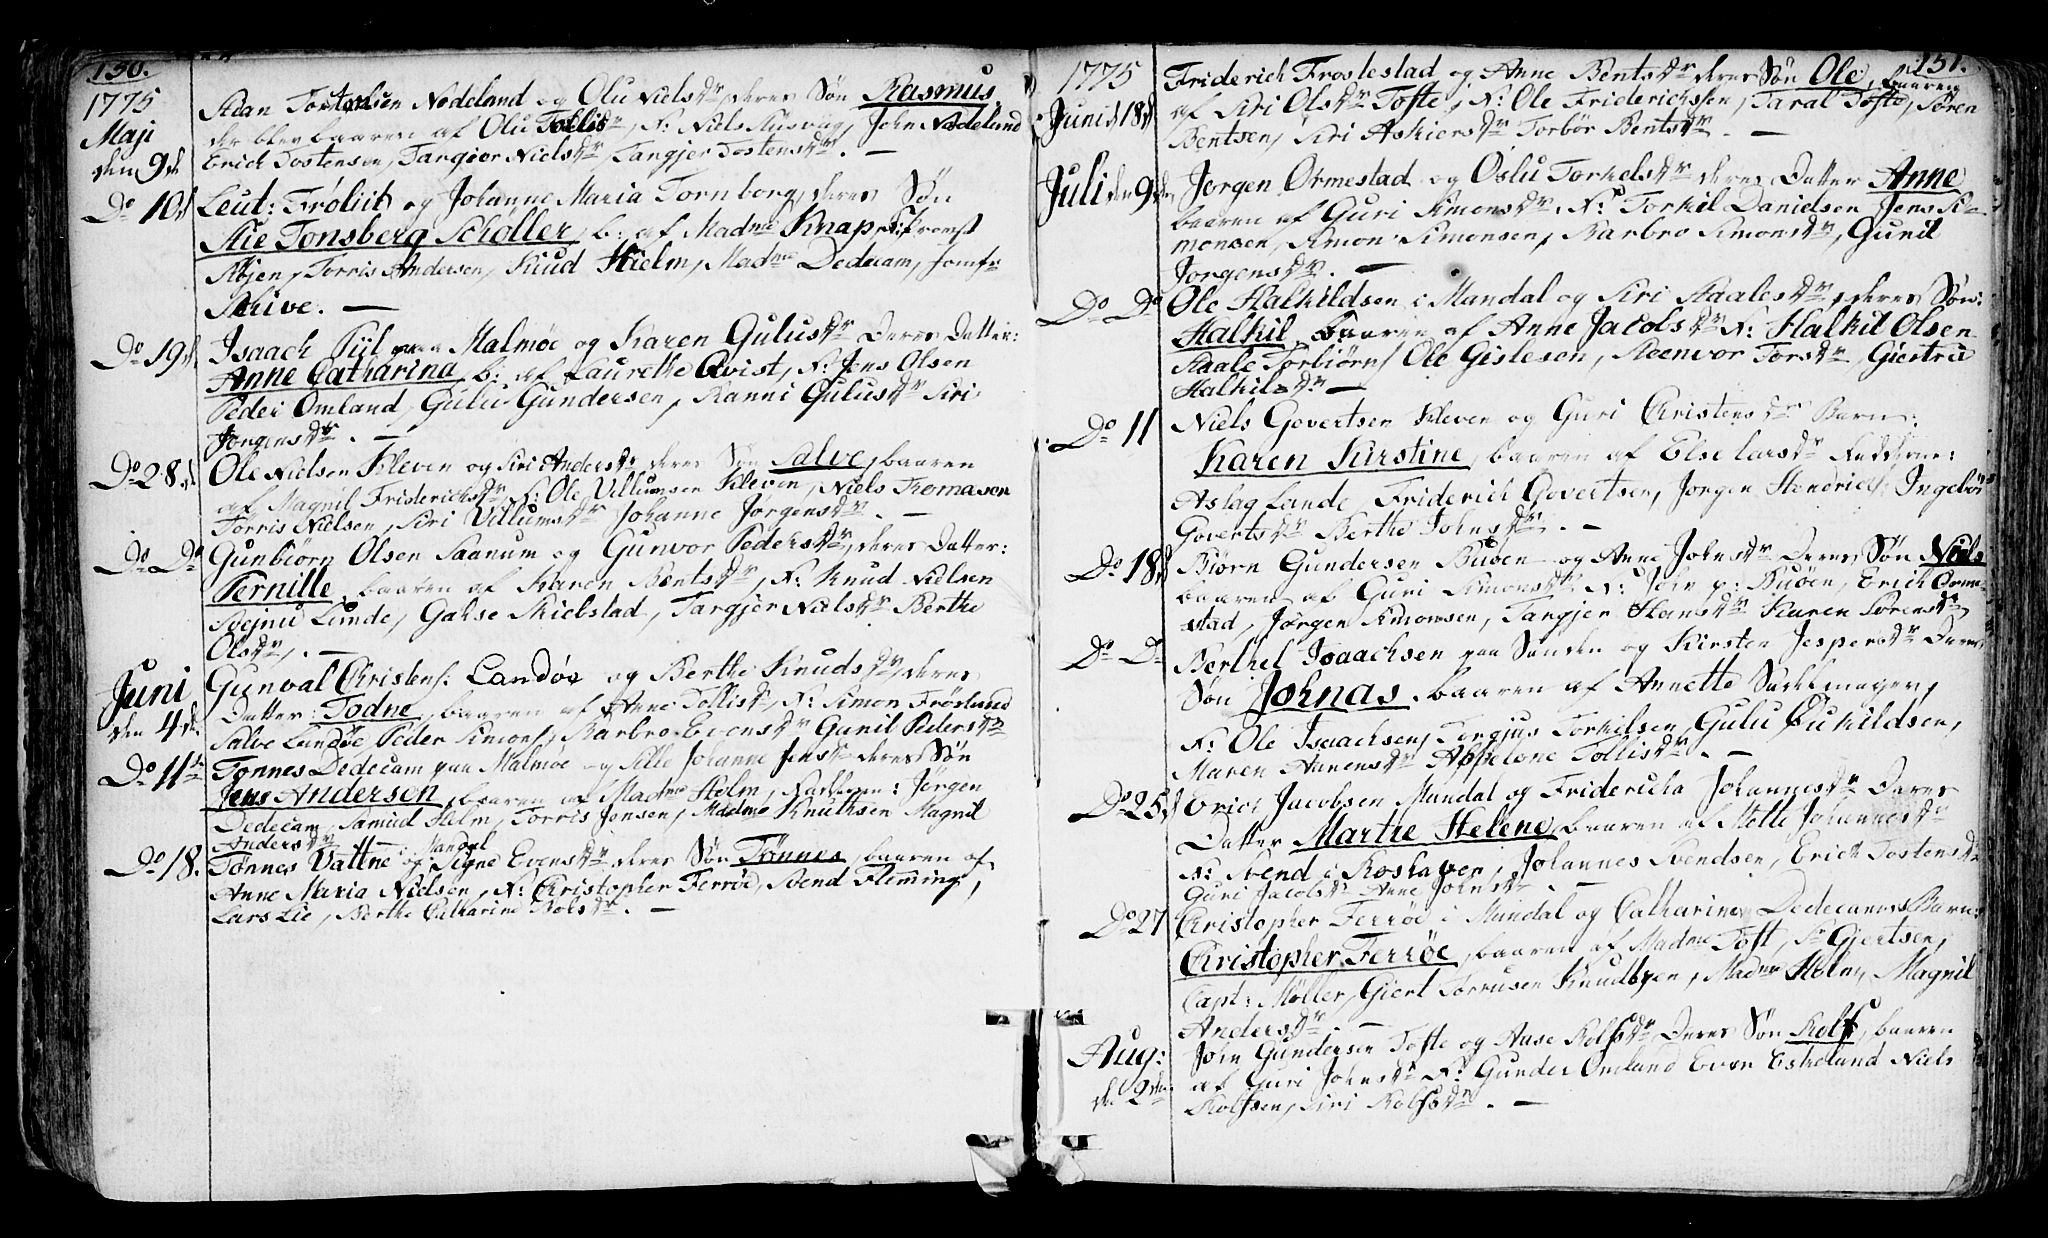 150.
1775
Maji
den 9de
Aan Tostensen Nødeland og Olu Nielsdr, deres Søn Rasmus
der blev baaren af Olu Tollisdr, F: Niels Ausvig, John Nødeland
Erich Tostensen, Targier Nielsdr, Tangjer Tostensdr. —
Do 10d
Leut: Frølich og Johanne Maria Tornborg, deres Søn
Aie Tonsberg Schøller, b: af Madme Knap, F:
Abjen, Torris Andersen, Knud Hielm, Madme Dedecam, Jomfr
Schive. —
Do 19d
Isaach Piil paa Malmøe og Karen Gulusdr Deres Datter:
Anne Catharina, b: af Laurethe Qvist, F: Jens Olsen
Peder Omland, Gulu Gundersen, Ranni Gulusdr Siri
Jørgensdr. —
Do 28d
Ole Nielsen Kleven og Siri Andersdr deres Søn Salve, baaren
af Magnil Friderichsdr F: Ole Villumsen Kleven, Niels Tomasen
Torris Nielsen, Siri Villumsdr Johanne Jørgensdr. —
Do Do
Gunbiørn Olsen Saanum og Gunvor Pedersdr, deres Datter:
Pernille, baaren af Karen Bentsdr, F: Knud Nielsen
Svejnu Lunde, Gakse Skiebstad, Targjer Nielsdr Berthe
Olsdr, —
Juni
den 4de
Gunval Christens: Landøe og Berthe Knudsdr, deres
Datter: Todne, baaren af Anne Tollisdr, F: Simon Frøslund
Salve Landøe Peder Simons, Barbro Evensdr Gunil Pedersdr
Do 11te
Tønnes Dedecam paa Malmøe og Sille Johanne Jensdr deres Søn
Jens Andersen, baaren af Madme Holm, Fadderne: Jørgen
Dedecam, Samuel Helm, Torris Jensen, Madme Knuthsen Magnil
Andersdr —
Do 18.
Tønnes Vattne i Mandal og Signe Evensdr deres Søn Tønnes, baaren af
Anne Maria Nielsen, F: Christopher Ferrøe, Svend Fleming,
Lars Lie, Berthe Catharine Bolsdr. —
151.
1775
Juni d 18d
Friderich Frostestad og Anne Bentsdr deres Søn Ole, baaren
af Siri Olsdr Tofte, F: Ole Friderichsen, Taral Tofte, Søren
Bentsen, Siri Askiersdr Torbør Bentsdr. —
Juli den 9de
Jørgen Ormestad og Oslu Torkelsdr deres Datter Anne
baaren af Guri Simonsdr. F: Torkil Danielsen Jens Si-
monsen, Simon Simonsen, Barbro Simonsdr, Gunil
Jørgensdr. —
Do Do
Ole Halkildsen i Mandal og Siri Aaalesdr, deres Søn:
Halkil, baaren af Anne Jacobsdr F: Halkil Olsen
Aaale Torbiørns Ole Gislesen, Roenvor Torsdr, Giertru
Halkilsdr —
Do 11
Niels Govertsen Kleven og Guri Christensdr Barn:
Karen Kirstine, baaren af Else Larsdr Fadderne:
Aslag Lande, Friderich Govertsen, Jørgen Hendrichs: Ingebør
Govertsdr Berthe Johnsdr. —
Do 18d
Biørn Gundersen Buøen og Anne Johnsdr Deres Søn Niels
baaren af Guri Simonsdr F: John p: Buøen, Erich Orme-
stad, Jørgen Simonsen, Tangjer Hansdr Karen Sørensdr
Do Do
Berthel Isaachsen paa Sanden og Kirsten Jespersdr Deres
Søn Johnas. baaren af Annette Sadelmager,
F: Ole Isaachsen, Torgjus Torkilsen, Gulu Øukildsen,
Maren Aanensdr Appelone Tollisdr. —
Do 25d
Erich Jacobsen Mandal og Fridericha Johannesdr Deres
Datter Marthe Helene, baaren af Mette Johannesdr
F: Svend i Roshaven, Johannes Svendsen, Erich Tostensdr
Guri Jacobsdr Anne Johnsdr. —
Do 27
Christopher Ferrøe i Mandal og Catharine Dedecams Barn:
Christopher Ferrøe, baaren af Madme Toft, Sr Gjertsen,
Capt: Møller, Giert Torrusen Knudtzen, Madme Holm, Magnil
Andersdr —
Aug:
den 2den
John Gundersen Tofte og Aase Rolfsdr Deres Søn Rolf, baaren
af Guri Johnsdr F: Gunder Omland Even Eskeland Niels
Rolfsen, Siri Rolfsdr. —